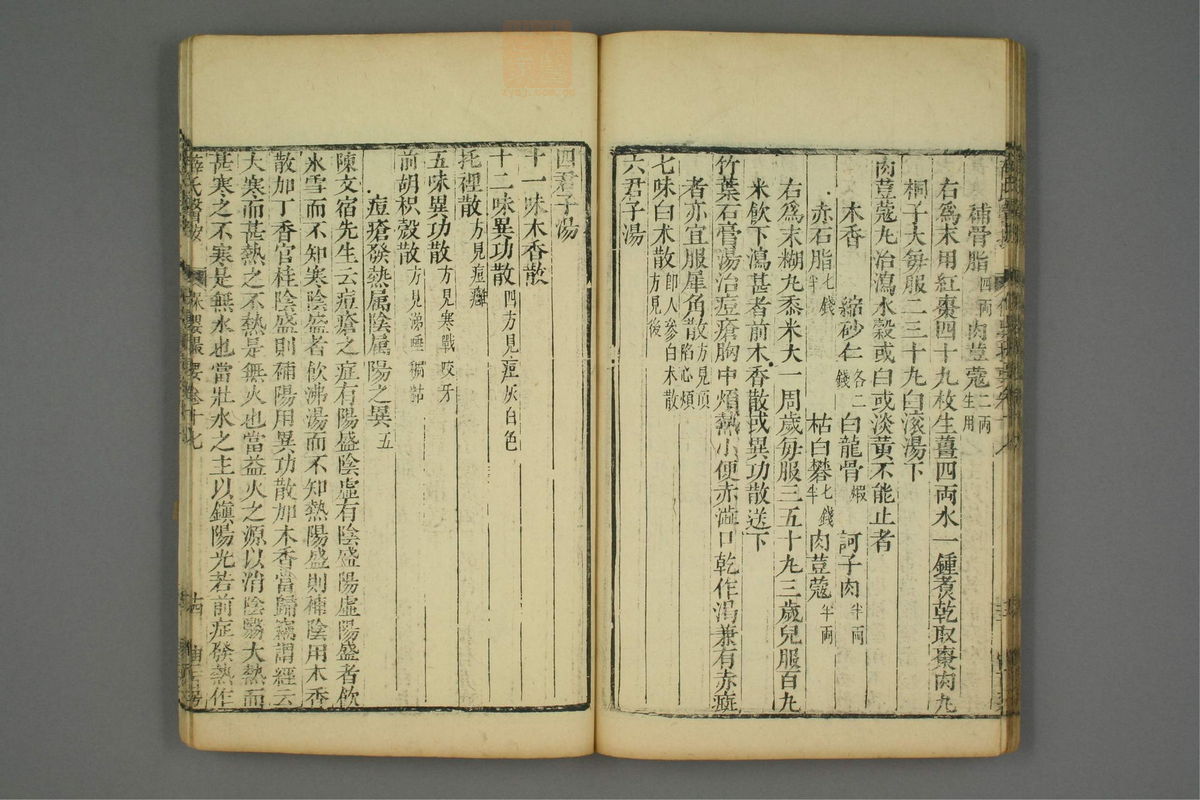 補骨脂四両 肉荳蔻二両生用
右為末用紅棗四十九枚生薑四両水一鍾煑乾取棗肉丸
桐子大毎服二三十丸白滚湯下
肉荳蔻丸治瀉水穀或白或淡黄不能止者
木香 縮砂仁各二錢 白龍骨 訶子肉半両
赤石脂七錢半 枯白礬七錢半 肉荳蔻半両
右為末糊丸黍米大一周歲毎服三五十丸三歲兒服百丸
米飲下瀉甚者前木香散或異功散送下
竹葉石膏湯治痘瘡胸中煩熱小便赤澁口乾作渴兼有赤癍
者亦宜服犀角散方見頂陷心煩
七味白朮散即人參白朮散方見後
六君子湯
四君子湯
十一味木香散
十二味異功散四方見痘灰白色
托裡散方見痘癰
五味異功散方見寒戰咬牙
前胡枳殼散方見涕唾稠黏
痘瘡發熱属陰属陽之異五
陳文宿先生云痘瘡之症有陽盛陰虛有陰盛陽虛陽盛者飲
氷雪而不知寒陰盛者飲沸湯而不知熱陽盛則補陰用木香
散加丁香官桂陰盛則補陽用異功散加木香當歸竊謂經云
大寒而甚熱之不熱是無火也當益火之源以消陰翳大熱而
甚寒之不寒是無水也當壯水之主以鎮陽光若前症發熱作
薛氏醫按 保嬰撮要卷十七 十四